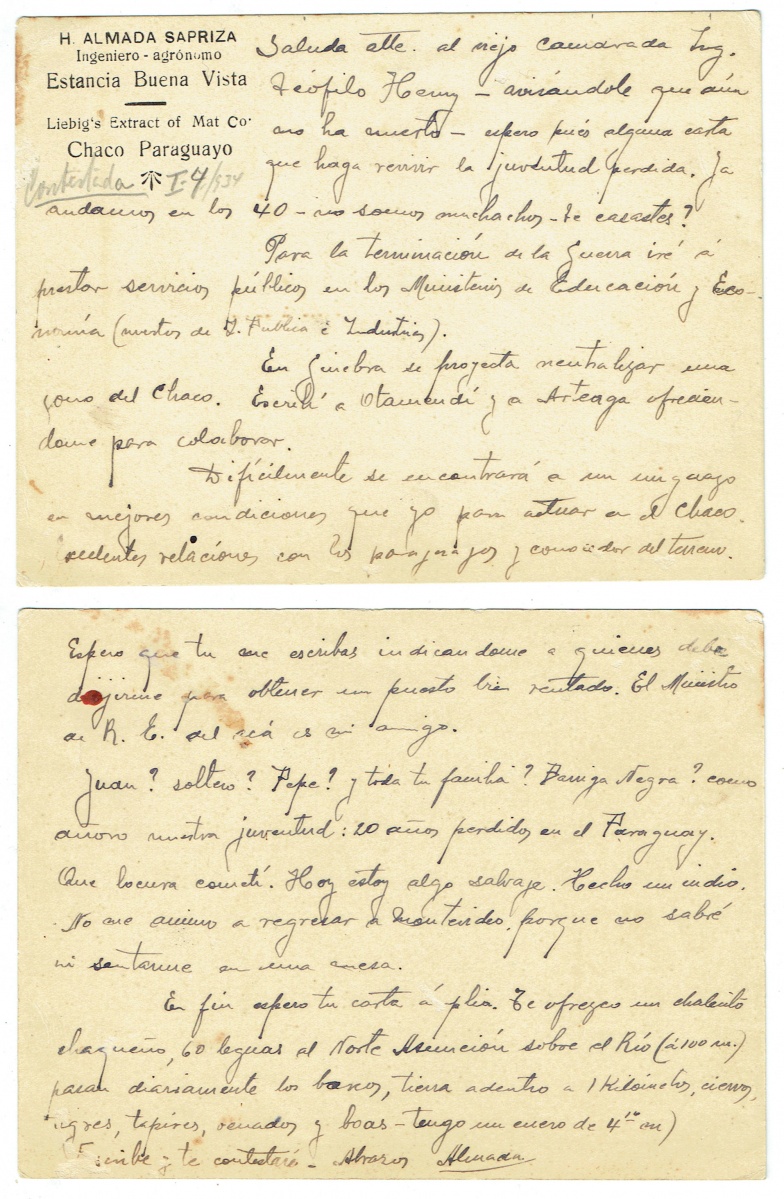 H. ALMADA SAPRIZA
Ingeniero - agrónomo
Estancia Buena Vista
Liebig's Extract of Mat Co.
Chaco Paraguayo
Contestada I-4/934
Saluda atte. al viejo camarada Ing.
Teófilo Henry - avisándole que aún
no ha muerto - espero pués alguna carta
que haga revivir la juventud perdida. Ya
andamos en los 40 - no somos muchachos - te casastes?
Para la terminación de la Guerra iré á
prestar servicios públicos en los Ministerios de Educación y Eco-
nomía (nuestros de I. Publica é Industrias).
En Ginebra se proyecta neutralizar una
zona del Chaco. Escribí a Otamendí y a Arteaga ofrecien-
dome para colaborar.
Difícilmente se encontrará a un uruguayo
en mejores condiciones que yo para actuar en el Chaco.
relaciones con los paraguayos y conocedor del terreno.
Espero que tu me escribas indicandome a quienes debo
dirijirme para obtener un puesto bien rentado. El Ministro
de R. E. del acá es mi amigo.
Juan? soltero? Pepe? y toda tu familia? Barriga Negra? como
añoro nuestra juventud: 20 años perdidos en el Paraguay.
Que locura cometí. Hoy estoy algo salvaje. Hecho un indio.
No me animo a regresar a Montevideo, porque no sabré
ni sentarme en una mesa.
En fin espero tu carta á Te ofrezco un chalecito
chaqueño, 60 leguas al Norte Asunción sobre el Río (á 100 m.)
pasan diariamente los barcos, tierra adentro a 1 Kilómetro, ciervos,
tigres, tapires, venados y boas - tengo un cuero de 4 m)
Escribe y te contestaré - Abrazos Almada